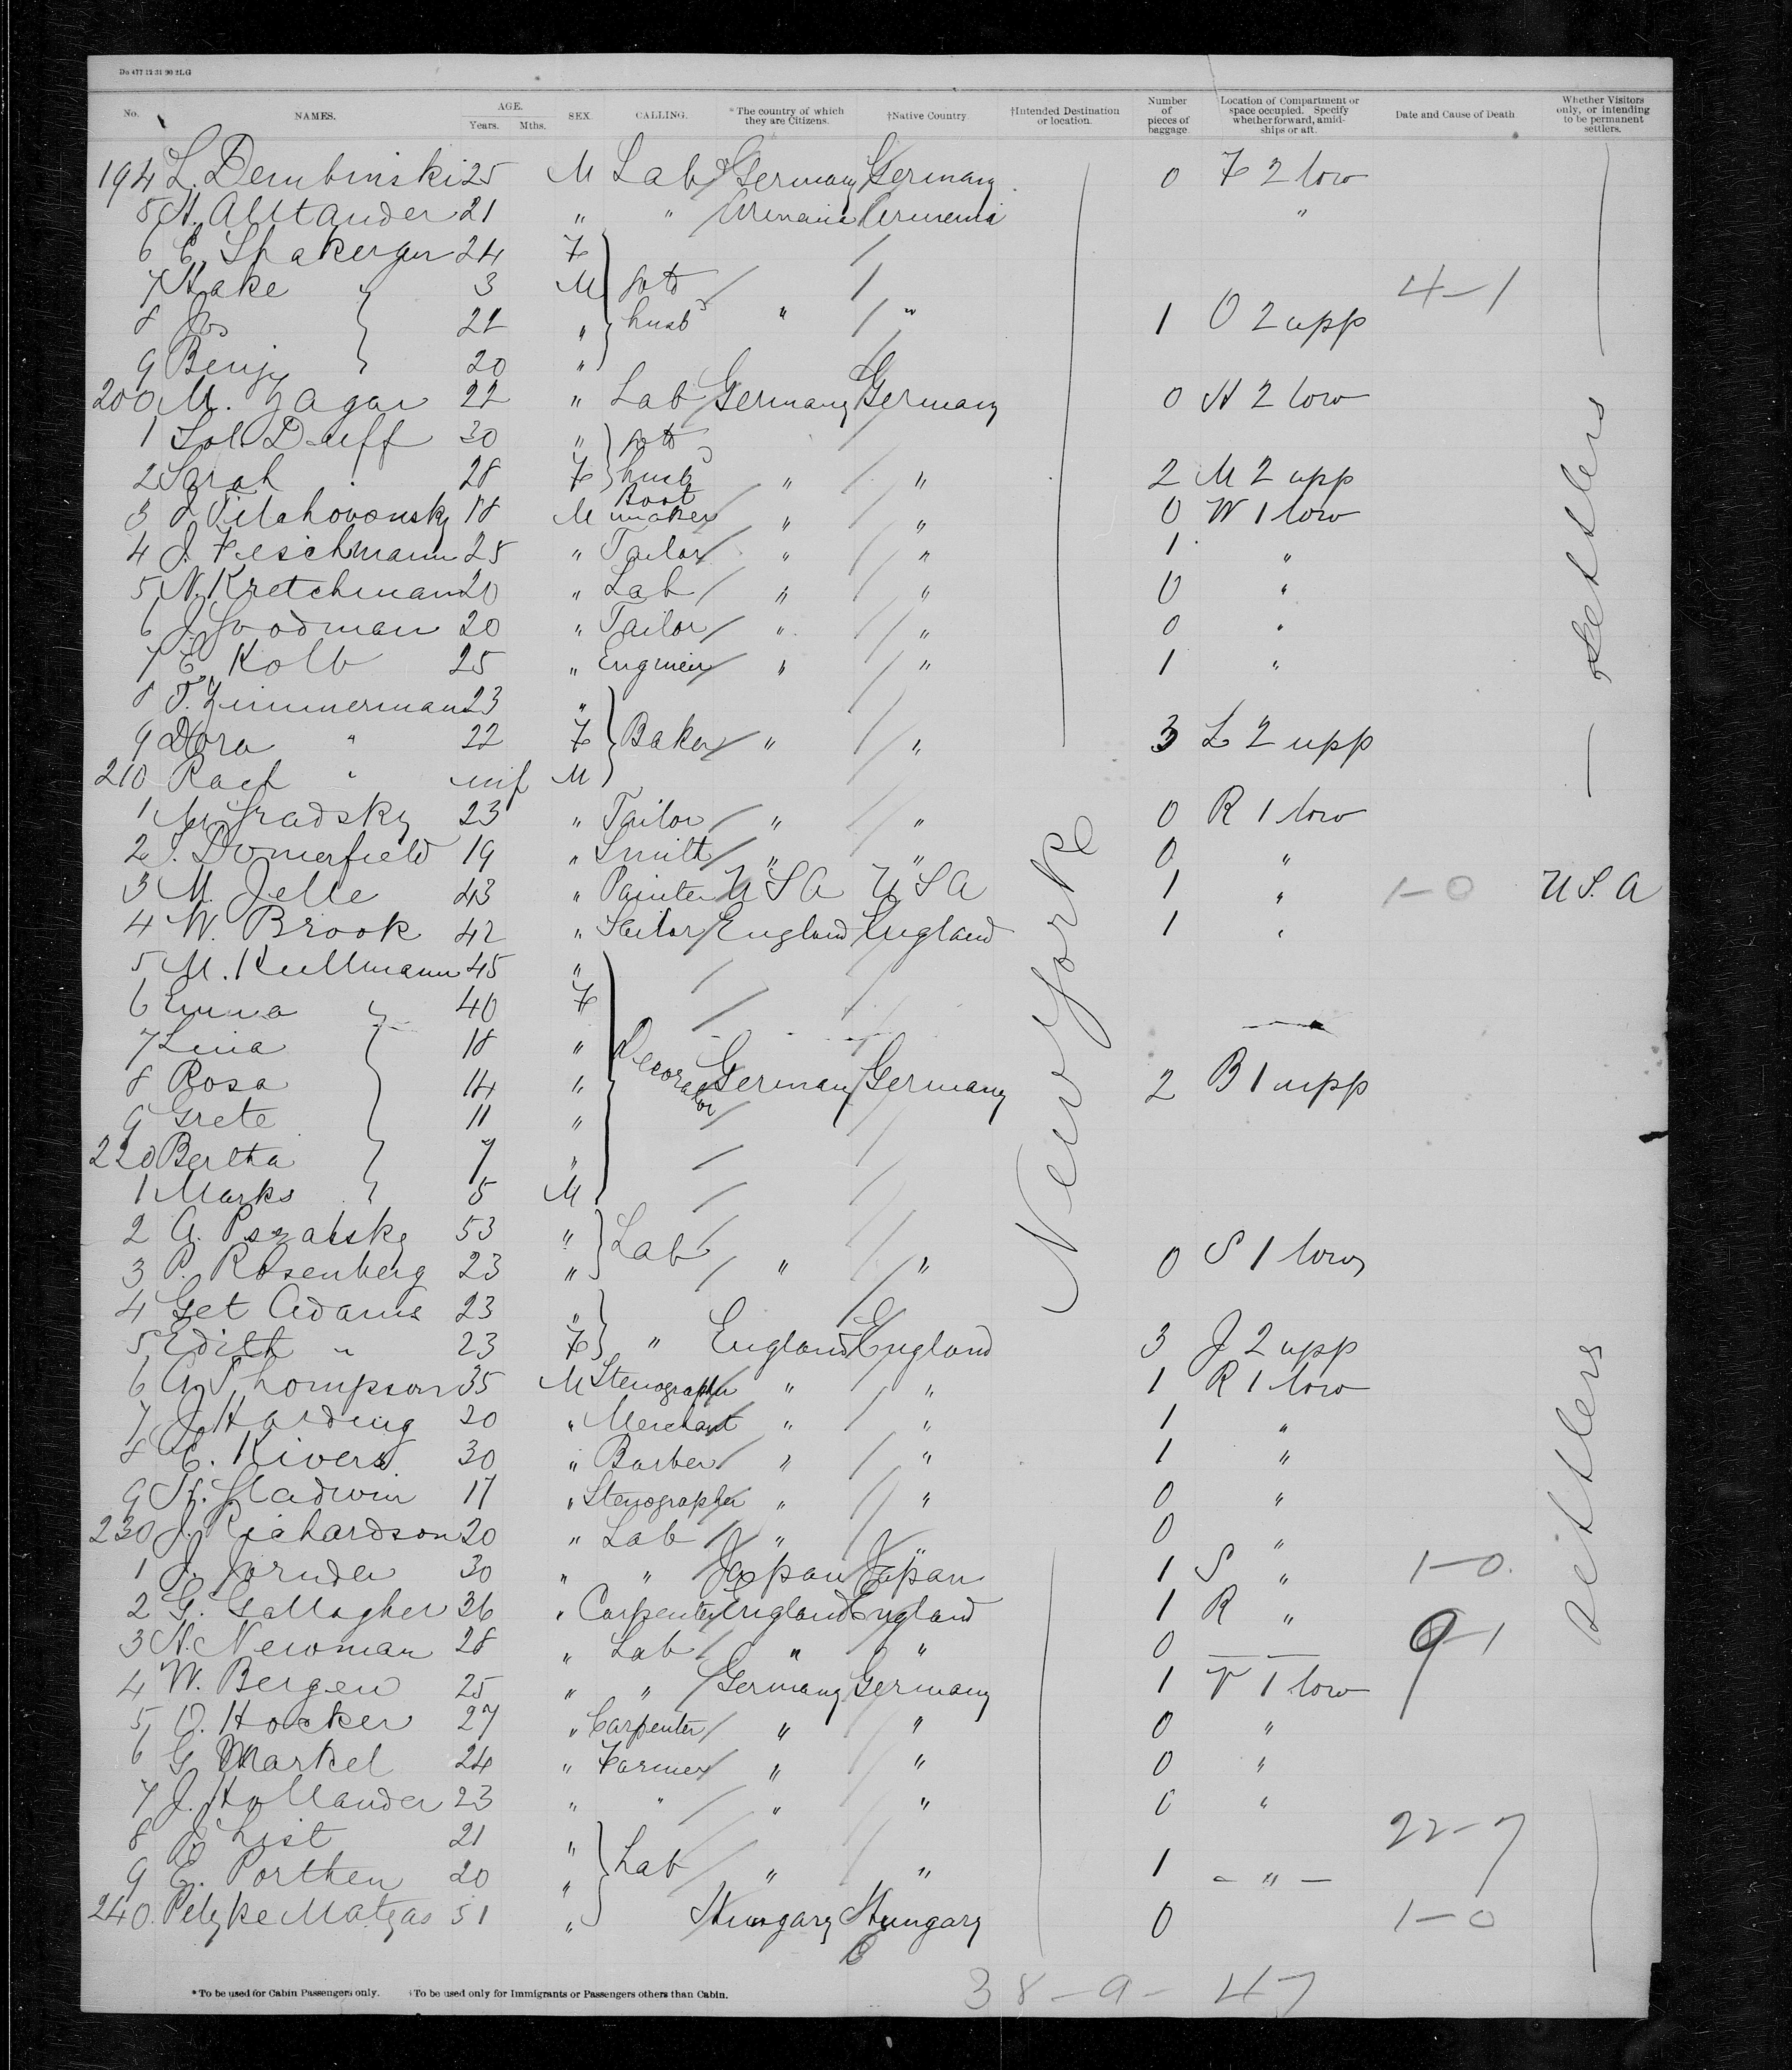 Do 477 12 31 90 2LG
No. NAMES. AGE. Years. Mths. SEX. CALLING. *The country of which they are Citizens. †Native Country †Intended Destination or location. Number of pieces of baggage Location of Compartment or space occupied. Specify whether forward, amidships or aft. Date and Cause of Death Whether Visitors only, or intending to be permanent settlers.
194 L. Dembinski 25 M Lab Germany Germany 0 F 2 low
5 21 " " Armenia Armenia "
6 24 F
7 Hake " 3 M 4-1
8 Jos 22 " husb " " 1 O 2 upp
9 Benj 20 "
200 M. Zagar 22 " Lab Germany Germany 0 H 2 low
1 Sol. Duff 30 "
2 Sarah 28 F husb " " 2 M 2 upp
3 18 M Boot maker " " 0 W 1 low
4 J. Fleschmann 25 " Tailor " " 1 "
5 N. Kretchmann 20 " Lab " " 0 "
6 J. Goodman 20 " Tailor " " 0 "
7 E. Kolb 25 " Engineer " " 1 "
8 T. Zimmerman 23 "
9 Dora " 22 F Baker " " 3 L 2 upp
210 " inf M
1 M. Gradsky 23 " Tailor " " 0 R 1 low
2 J. Domerfield 19 " Smith " " 0 "
3 M. Jelle 43 " Painter U S A U S A 1 " 1-0 U. S. A
4 W. Brook 42 " Sailor England England 1 "
5 M. Kullmann 45 "
6 Emma " 40 F
7 Lina 18 "
8 Rosa 14 " Decorator Germany Germany 2 B 1 upp
9 Grete 11 "
220 Bertha 7 "
1 Marks 5 M
2 53 " Lab
3 P. Rosenberg 23 " " " 0 S 1 low
4 Get Adams 23 "
5 Edith " 23 F " England England 3 J 2 upp
6 A. Thompson 35 M Stenographer " " 1 R 1 low
7 J. Harding 20 " Merchant " " 1 "
8 30 " Barber " " 1 "
9 H. Gladwin 17 " Stenographer " " 0 "
230 J. Richardson 20 " Lab " " 0 "
1 30 " " Japan Japan 1 S " 1-0.
2 G. Gallagher 36 " Carpenter England England 1 R "
3 H. Newman 28 " Lab " " 0 — — 9-1
4 W. Bergen 25 " " Germany Germany 1 V 1 low
5 O. Hocker 27 " Carpenter " " 0 "
6 G. Markel 24 " Farmer " " 0 "
7 J. Hollander 23 " " " " 0 "
8 List 21 " 22-7
9 E. Porthen 20 " Lab " " 1 - " -
240. Pelyke Matyas 51 " Hungary Hungary 0 1-0
New Yorke
settlers
settlers
*To be used for Cabin Passengers only. †To be used only for Immigrants or Passengers others than Cabin.
38-9-47